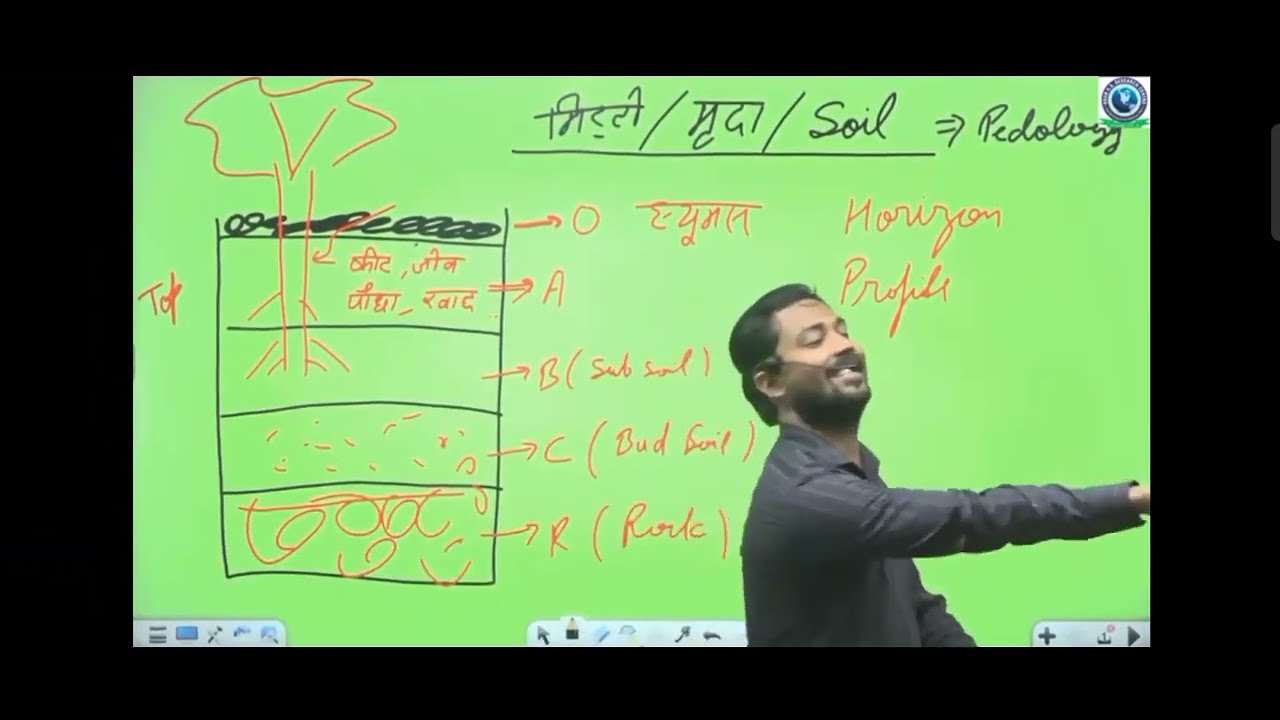 मिट्टी / मृदा / Soil ⇒ Pedology
→ O ह्यूमस Horizon
Profile
कीट, जीव
Top पौधा, खाद ⇒ A
→ B (Sub soil)
→ C (Bud Soil)
→ R (Rork)